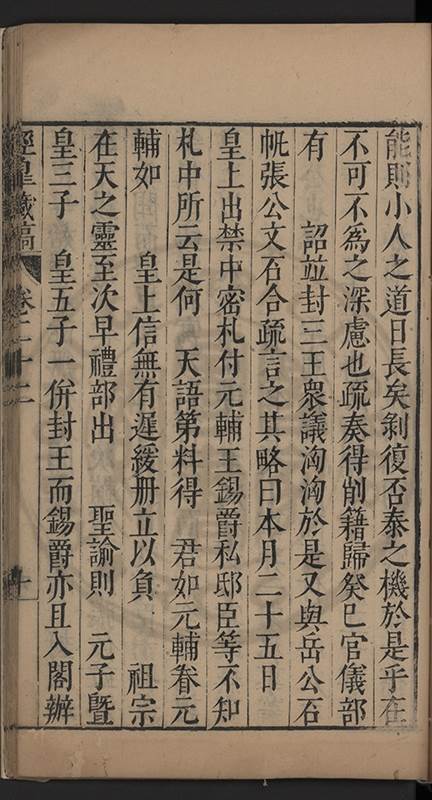 能則小人之道日長矣剝復否泰之機於是乎在
不可不為之深慮也疏奏得削籍歸癸巳官儀部
有　詔並封三王衆議洶洶於是又與岳公石
帆張公文石合疏言之其略曰本月二十五日
皇上出禁中密札付元輔王錫爵私邸臣等不知
札中所云是何　天語第料得　君如元輔眷元
輔如　皇上信無有遲緩册立以負　祖宗
在天之靈至次早禮部出　聖諭則　元子曁
皇三子　皇五子一併封王而錫爵亦且入閣辦
卷二十二　十